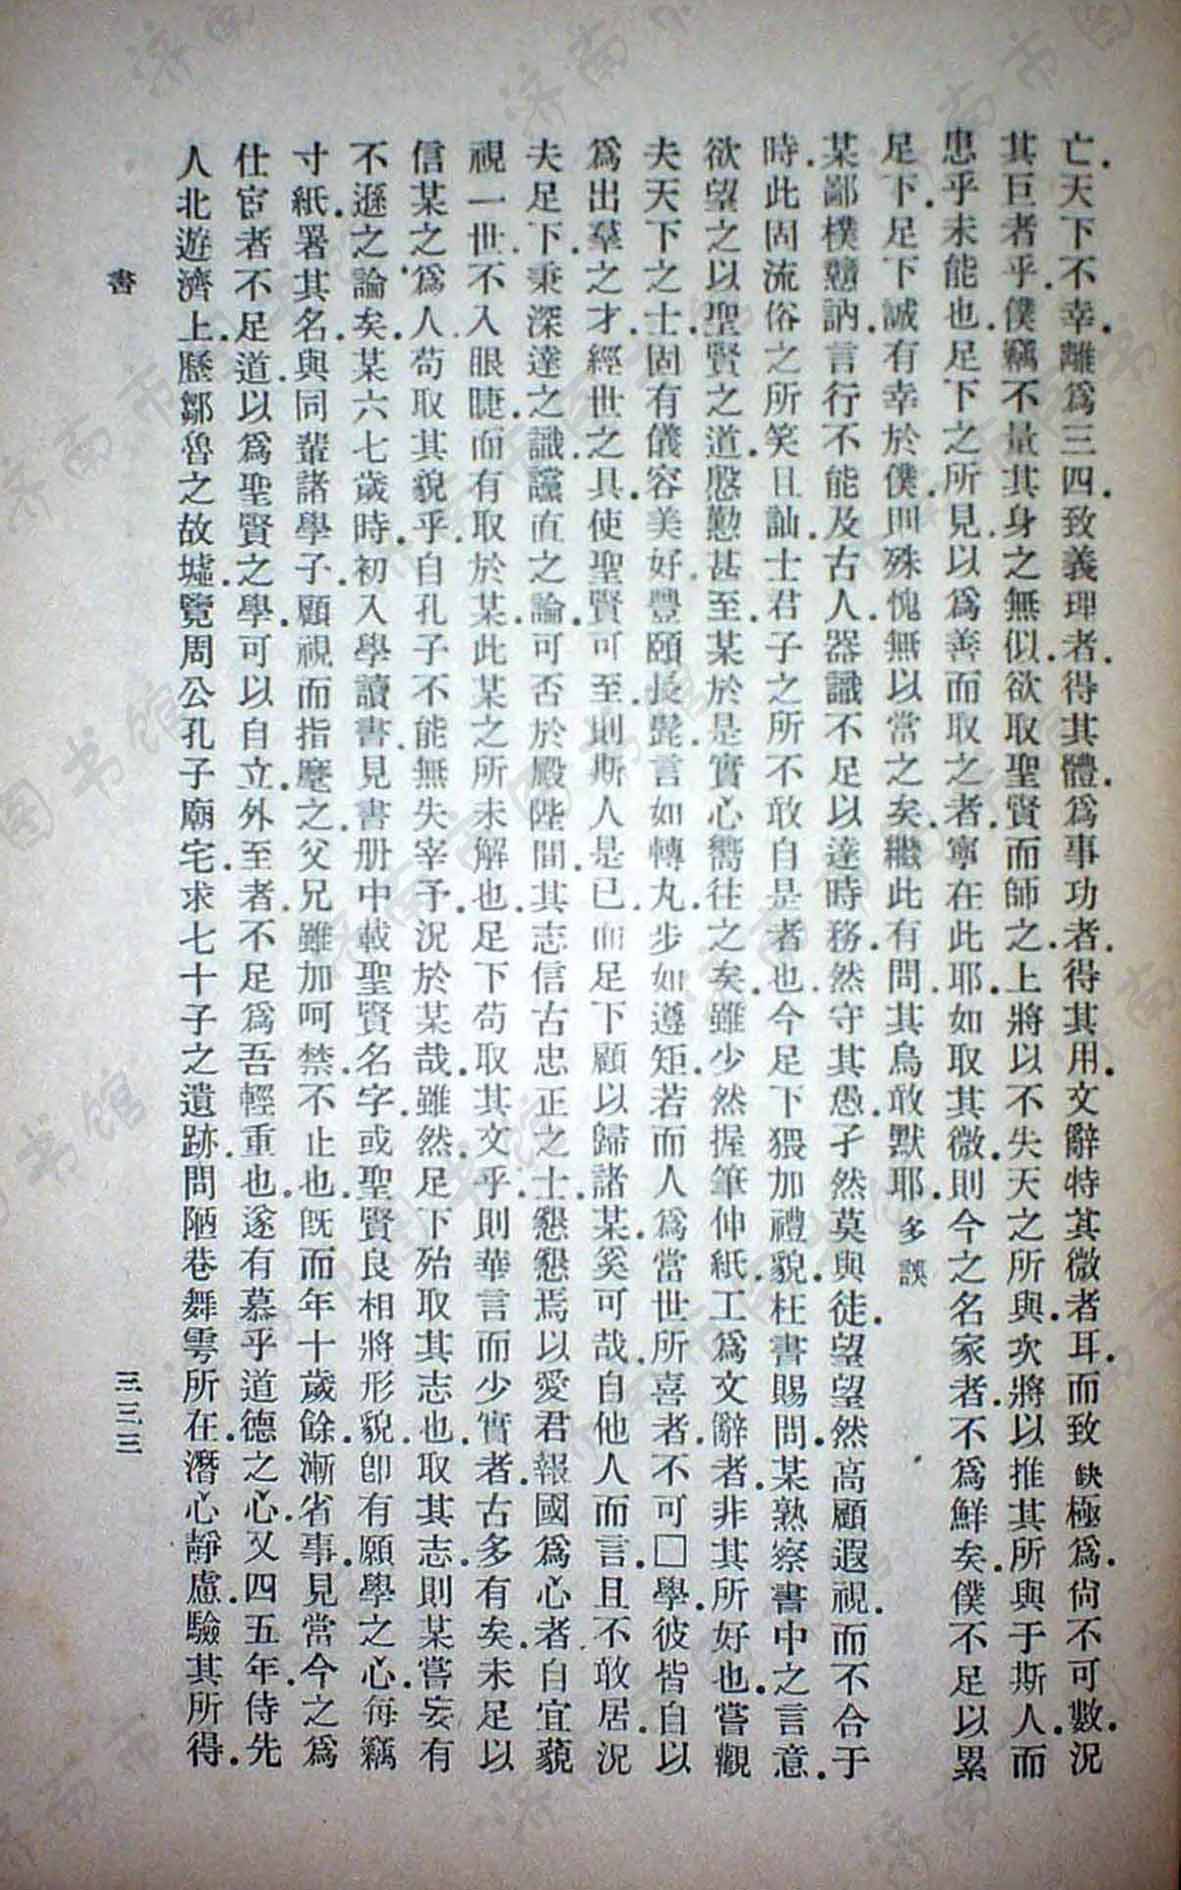 亡.天下不幸.離爲三四.致義理者.得其體.爲事功者.得其用.文辭特其微者耳.而致缺極爲.尙不可數.況
其巨者乎.僕竊不量其身之無似.欲取聖賢而師之.上將以不失天之所與.次將以推其所與于斯人.而
患乎未能也.足下之所見以爲善而取之者.寧在此耶.如取其微.則今之名家者.不爲鮮矣.僕不足以累
足下.足下誠有幸於僕.則殊愧無以當之矣.繼此有問.其烏敢默耶.多誤
某鄙樸戇訥.言行不能及古人.器識不足以達時務.然守其愚.孑然莫與徒.望望然高顧遐視.而不合于
時.此固流俗之所笑且訕.士君子之所不敢自是者也.今足下猥加禮貌.枉書賜問.某熟察書中之言意.
欲望之以聖賢之道.慇懃甚至.某於是實心嚮往之矣.雖少然握筆伸紙.工爲文辭者.非其所好也.嘗觀
夫天下之士.固有儀容美好.豐頤長髭.言如轉丸.步如遵矩.若而人爲當世所喜者.不可□學.彼皆自以
爲出羣之才.經世之具.使聖賢可至.則斯人是已.而足下顧以歸諸某.奚可哉.自他人而言.且不敢居.況
夫足下.秉深達之識.讜直之論.可否於殿陛間.其志信古忠正之士.懇懇焉以愛君報國爲心者.自宜藐
視一世.不入眼睫.而有取於某.此某之所未解也.足下苟取其文乎.則華言而少實者.古多有矣.未足以
信某之爲人.苟取其貌乎.自孔子不能無失宰予.況於某哉.雖然.足下殆取其志也.取其志.則某嘗妄有
不遜之論矣.某六七歲時.初入學讀書.見書册中載聖賢名字.或聖賢良相將形貌.卽有願學之心.每竊
寸紙.署其名.與同輩諸學子.顧視而指麾之.父兄雖加呵禁.不止也.旣而年十歲餘.漸省事.見當今之爲
仕宦者不足道.以爲聖賢之學.可以自立.外至者.不足爲吾輕重也.遂有慕乎道德之心.又四五年.侍先
人北遊濟上.歷鄒魯之故墟.覽周公孔子廟宅.求七十子之遺跡.問陋巷舞雩所在.潛心靜慮.驗其所得.
書
三三三